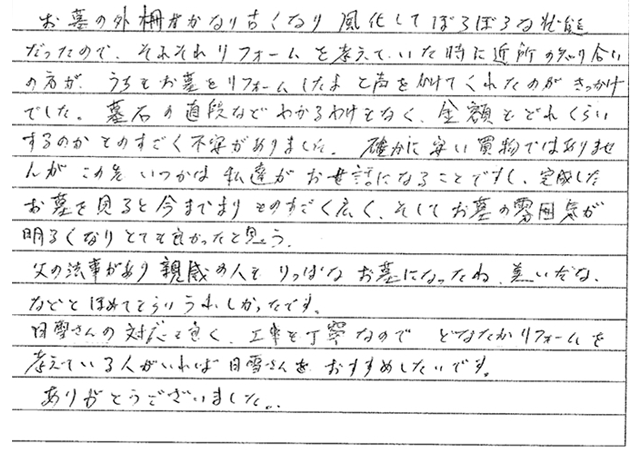 お墓の外柵がかなり古くなり 風化してぼろぼろな状態
だったので、そろそろリフォームを考えていた時に近所の知り合い
の方が、うちもお墓をリフォームしたよと声をかけてくれたのがきっかけ
でした。墓石の値段などわかるわけもなく、金額もどれくらい
するのかとのすごく不安がありました。確かに安い買物ではありませ
んが この先 いつかは 私達が お世話になることですし、完成した
お墓を見ると今までより ものすごく広く、そしてお墓の雰囲気が
明るくなりとても良かったと思う。
父の法事があり親戚の人も りっぱな お墓になったね、美いだな、
などとほめてもらいうれしかったです。
日雪さんの対応も良く、工事も丁寧なので どなたかリフォームを
考えている人がいれば 日雪さんを おすすめしたいです。
ありがとうございました。